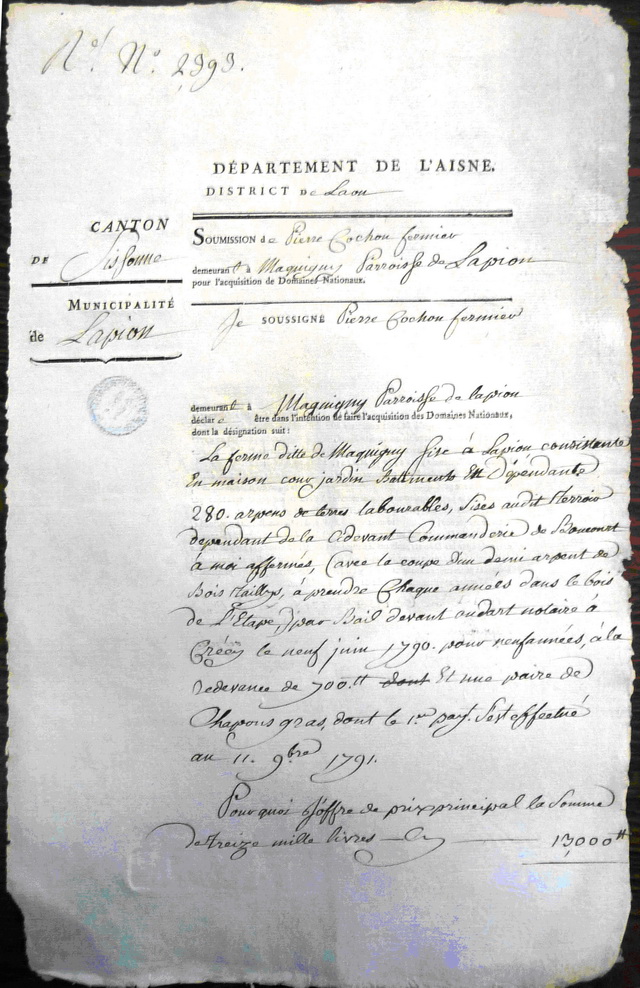 Nº. 2393.
DÉPARTEMENT DE L'AISNE.
DISTRICT DE Laon
CANTON
DE Sissonne
MUNICIPALITÉ
de Lapion
SOUMISSION de Pierre Cochon fermier
demeurant à Maquigny Parroisse de Lapion
pour l'acquisition de Domaines Nationaux.
Je SOUSSIGNÉ Pierre Cochon fermier
demeurant à Maquigny Parroisse de lapion
déclare être dans l'intention de faire l'acquisition des Domaines Nationaux,
dont la désignation suit :
La ferme ditte de Maquigny Sise à Lapion consistante
En maison cour jardin Batiments Et Dépendante
280. arpens de terres labourables, Sises audit Terroir
dependant de la Cidevant Commanderie de Boncourt
à moi affermés, (avec la coupe d'un demi arpent de
Bois Taillys, à prendre Chaque années dans le bois
de L'Etape,) par Bail devant oudart notaire à
Crécy le neuf juin 1790. pour neuf années, à la
redevance de 700.tt dont Et une paire de
Chapons gras, dont le 1.er pay.t S'est effectué
au 11. 9bre 1791.
Pourquoi J'offre de prix principal la Somme
de treize mille livres 13000tt